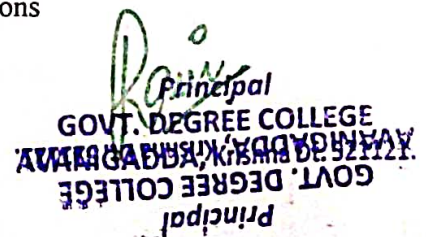 ons
Principal
GOVT. DEGREE COLLEGE
AVANIGADDA, Krishna Dt. 521121.
GOVT. DEGREE COLLEGE
Principal